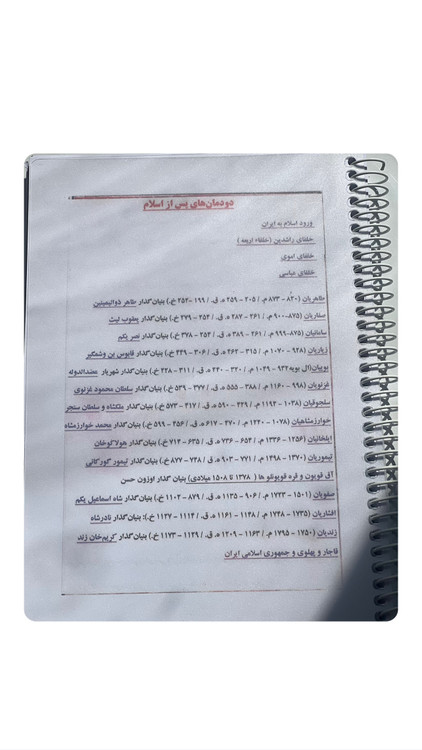 دودمان‌های پس از اسلام
ورود اسلام به ایران
خلفای راشدین (خلفاء اربعه)
خلفای اموی
خلفای عباسی
طاهریان (۸۲۰ – ۸۷۳ م. / ۲۰۵ – ۲۵۹ ه. ق. / ۱۹۹ –۲۵۲ خ.) بنیان‌گذار طاهر ذوالیمینین
صفاریان (۸۷۵–۹۰۰ م. / ۲۶۱ – ۲۸۷ ه. ق. / ۲۵۴ – ۲۷۹ خ.) بنیان‌گذار یعقوب لیث
سامانیان (۸۷۵–۹۹۹ م. / ۲۶۱ – ۳۸۹ ه. ق. / ۲۵۴ – ۳۷۸ خ.) بنیان‌گذار نصر یکم
زیاریان (۹۲۸ – ۱۰۷۰ م. / ۳۱۵ – ۴۶۲ ه. ق. / ۳۰۶ – ۴۴۹ خ.) بنیان‌گذار قابوس بن وشمگیر
بوییان(آل بویه ۹۳۲ – ۱۰۴۹ م. / ۳۲۰ – ۴۴۰ ه. ق. / ۳۱۱ – ۴۲۸ خ.) بنیان‌گذار شهریار عضدالدوله
غزنویان (۹۹۸ – ۱۱۶۰ م. / ۳۸۸ – ۵۵۵ ه. ق. / ۳۷۷ – ۵۳۹ خ.) بنیان‌گذار سلطان محمود غزنوی
سلجوقیان (۱۰۳۸ – ۱۱۹۴ م. / ۴۲۹ – ۵۹۰ ه. ق. / ۴۱۷ – ۵۷۳ خ.) بنیان‌گذار ملکشاه و سلطان سنجر
خوارزمشاهیان (۱۰۷۸ – ۱۲۲۰ م. / ۴۷۰ – ۶۱۷ ه. ق. / ۴۵۶ – ۵۹۹ خ.) بنیان‌گذار محمد خوارزمشاه
ایلخانیان (۱۲۵۶ – ۱۳۳۶ م. / ۶۵۴ – ۷۳۶ ه. ق. / ۶۳۵ – ۷۱۴ خ.) بنیان‌گذار هولاکوخان
تیموریان (۱۳۷۰ – ۱۴۹۸ م. / ۷۷۱ – ۹۰۳ ه. ق. / ۷۴۸ – ۸۷۷ خ.) بنیان‌گذار تیمور گورکانی
آق قویون و قره قویونلو ها ( ۱۳۷۸ تا ۱۵۰۸ میلادی) بنیان گذار اوزون حسن
صفویان (۱۵۰۱ – ۱۷۲۳ م. / ۹۰۶ – ۱۱۳۵ ه. ق. / ۸۷۹ – ۱۱۰۲ خ.) بنیان‌گذار شاه اسماعیل یکم
افشاریان (۱۷۳۵ – ۱۷۴۸ م. / ۱۱۴۸ – ۱۱۶۱ ه. ق. / ۱۱۱۴ – ۱۱۲۷ خ.): بنیان‌گذار نادرشاه
زندیان (۱۷۵۰ – ۱۷۹۵ م. / ۱۱۶۳ – ۱۲۰۹ ه. ق. / ۱۱۲۹ – ۱۱۷۳ خ.) بنیان‌گذار کریم‌خان زند
قاجار و پهلوی و جمهوری اسلامی ایران